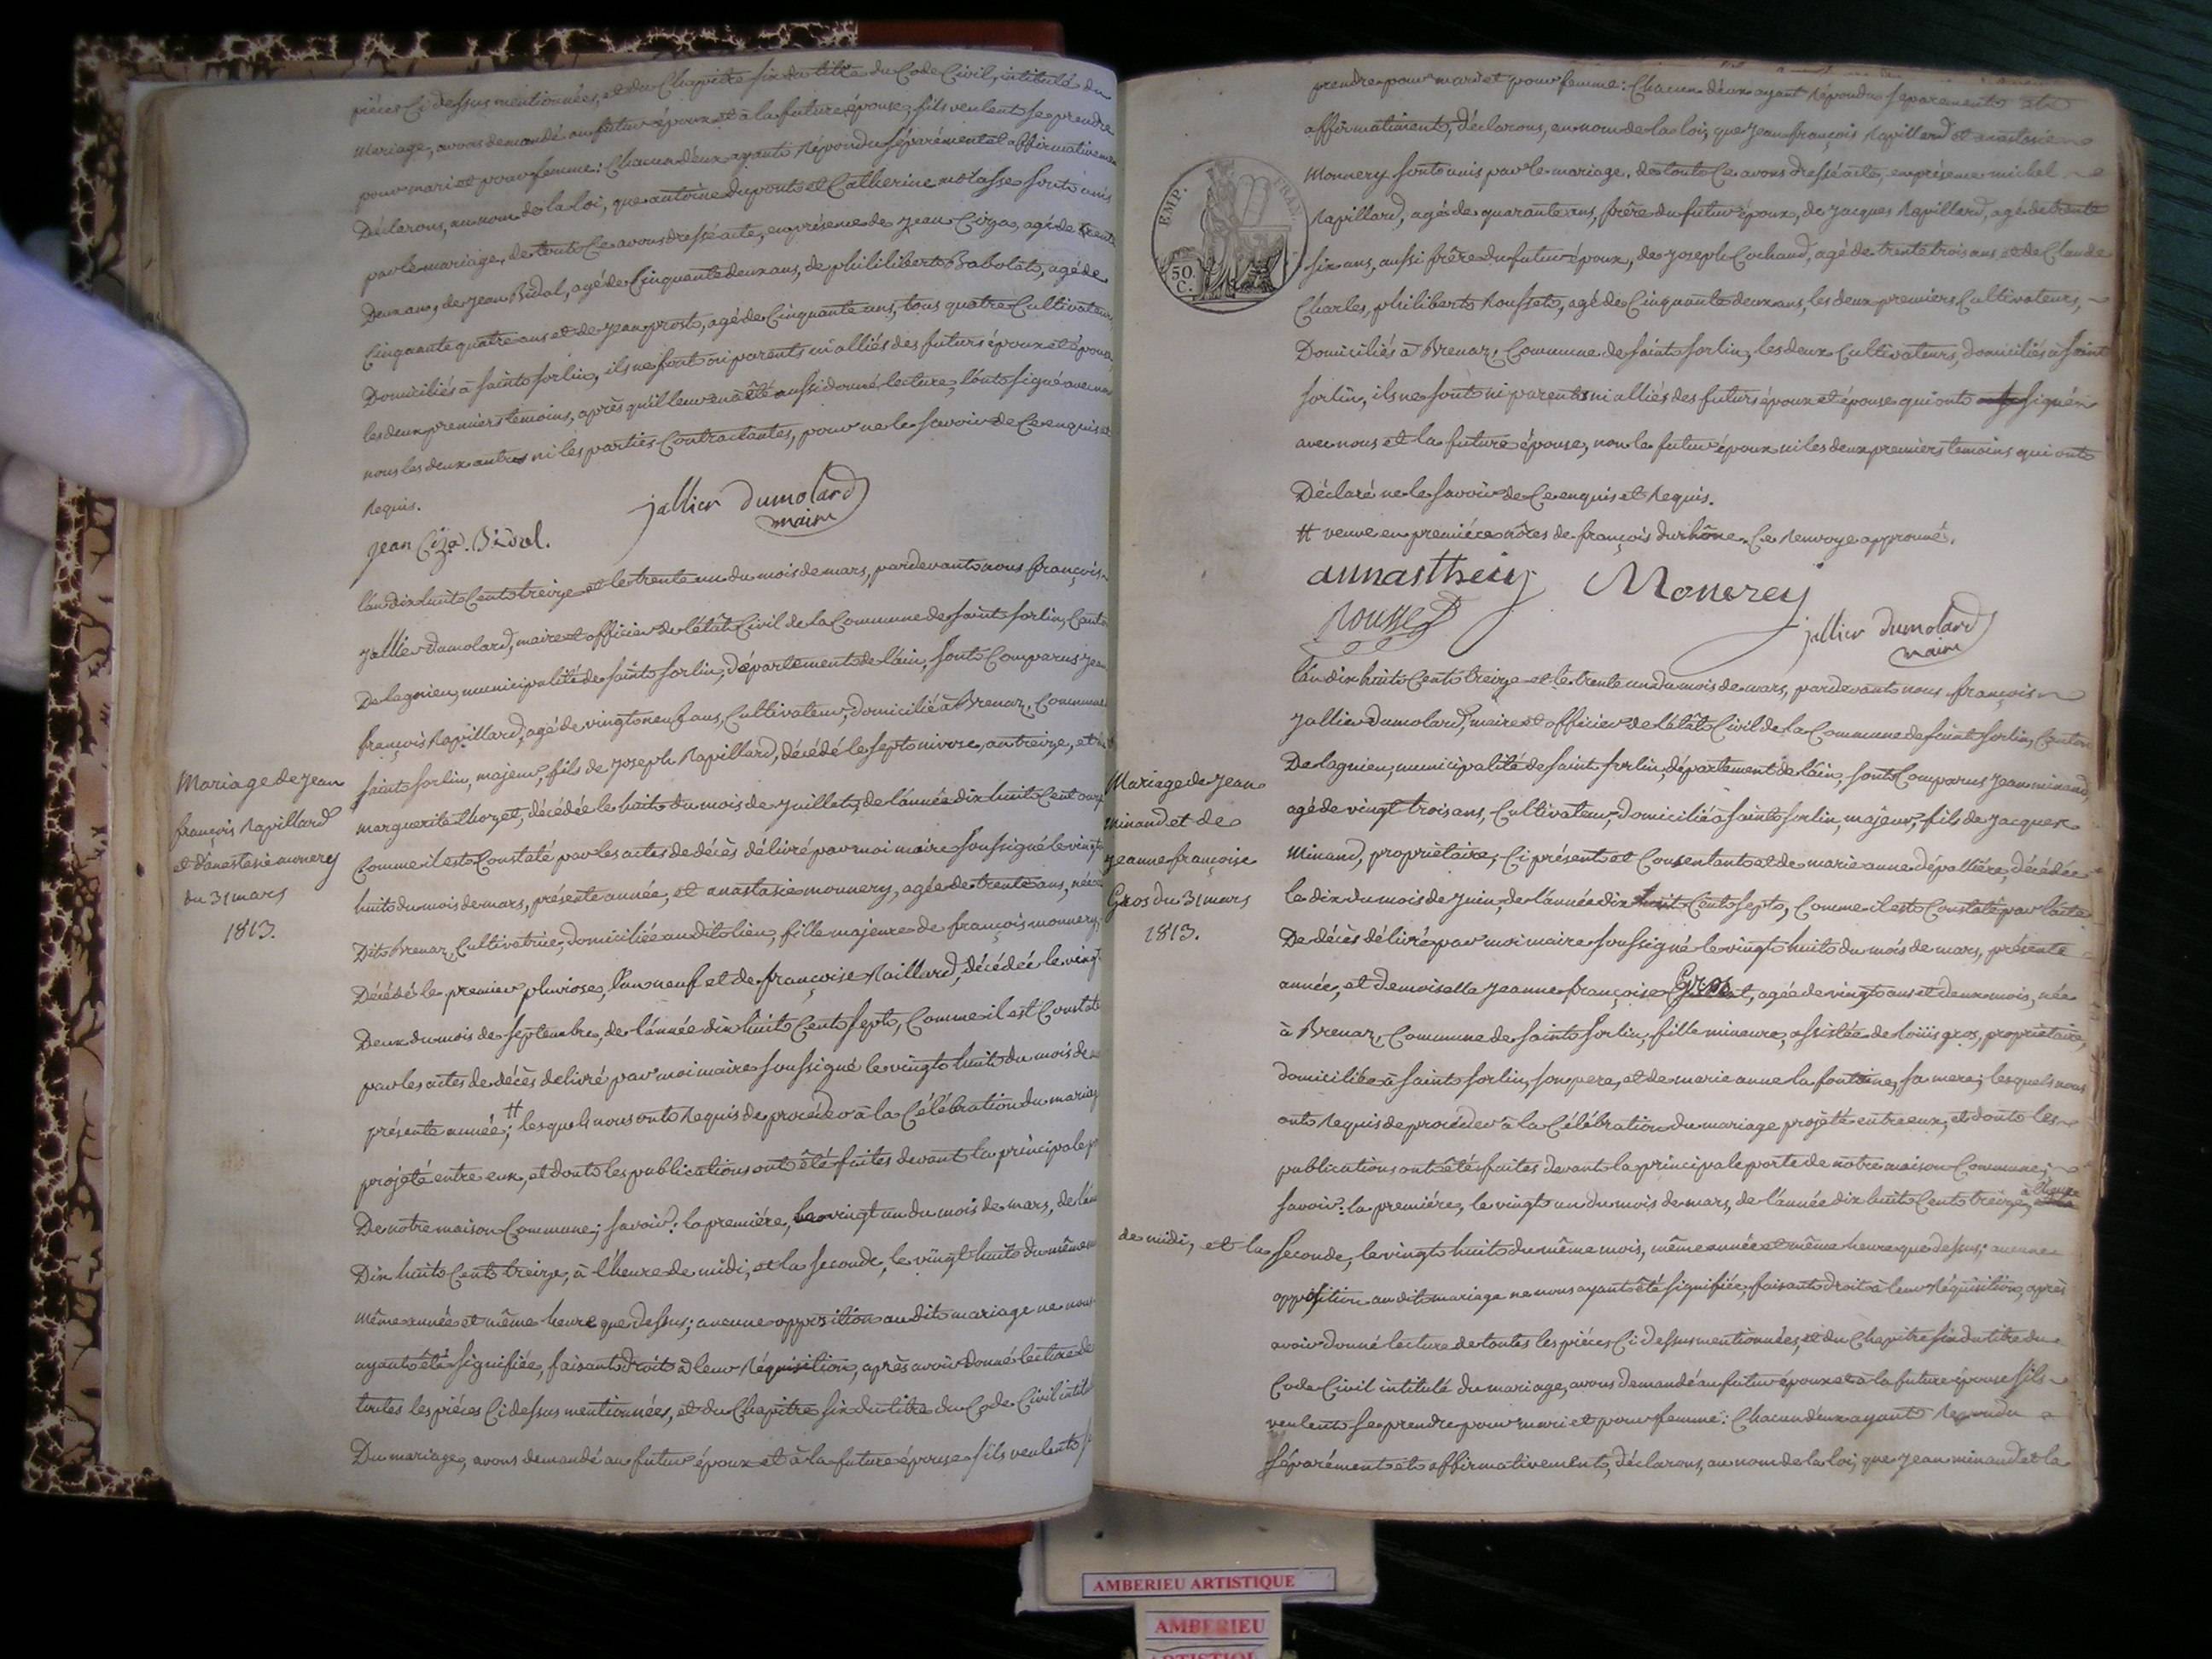 pièces Ci dessus mentionnées, et du Chapitre six du titre du Code Civil, intitulé du
mariage, avons demandé au futur époux et à la future épouse, s'ils veulent se prendre
pour mari et pour femme: Chacun d'eux ayant répondu séparément et affirmativement
Déclarons, au nom de la loi, que antoine dupont et Catherine molasse sont unis
par le mariage, de tout Ce avons dressé acte, en présence de jean Ciza, agé de trente
Deux ans, de jean Bidal, agé de Cinquante deux ans, de philibert Babolat, agé de
Cinquante quatre ans et de jean prost, agé de Cinquante ans, tous quatre Cultivateurs,
Domiciliés à saint sorlin, ils ne sont ni parents ni alliés des futurs époux et épouse,
les deux premiers temoins, après qu'il leur en a été aussi donné lecture, l'ont signé avec nous
nous les deux autres ni les parties Contractantes, pour ne le scavoir de Ce enquis et
requis.
jean Ciza. Bidal. jallier dumolard
maire
l'an dix huit Cent treize et le trente un du mois de mars, pardevant nous françois
jallier dumolard, maire et officier de l'état Civil de la Commune de saint sorlin, Canton
De lagnieu, municipalité de saint sorlin, département de l'ain, sont Comparus jean
françois Rapillard, agé de vingt neuf ans, Cultivateur, domicilié à Brenaz, Commune
saint sorlin, majeur, fils de joseph Rapillard, décédé le sept nivose, an treize, et de
marguerite thozet, décédée le huit du mois de juillet, de l'année dix huit Cent onze
Comme il est Constaté par les actes de décès délivré par moi maire soussigné le vingt
huit du mois de mars, présente année, et anastasie monnery, agée de trente ans, née
Dit Brenaz, Cultivatrice, domiciliée au dit lieu, fille majeure de françois monnery,
Décédé le premier pluviose, l'an neuf et de françoise Raillard, décédée le vingt
Deux du mois de septembre, de l'année dix huit Cent sept, Comme il est Constaté
par les actes de décès délivré par moi maire soussigné le vingt huit du mois de
présente année; # lesquels nous ont requis de procéder à la Célébration du mariage
projeté entre eux, et dont les publications ont été faites devant la principale p
De notre maison Commune; savoir: la première, le vingt un du mois de mars, de l'an
Dix huit Cent treize, à l'heure de midi, et la seconde, le vingt huit du même
même année et même heure que dessus; aucune opposition au dit mariage ne nous
ayant été signifiée, faisant droit à leur réquisition, après avoir donné lecture de
toutes les pièces Ci dessus mentionnées, et du Chapitre six du titre du Code Civil intitulé
Du mariage, avons demandé au futur époux et à la future épouse s'ils veulent s
Mariage de jean
françois Rapillard
et d'anastasie monnery
du 31 mars
1813.
prendre pour mari et pour femme: Chacun d'eux ayant répondu séparément et
affirmatiment, déclarons, au nom de la loi, que jean françois Rapillard et anastasie
Monnery sont unis par le mariage, de tout Ce avons dressé acte, en présence michel
Rapillard, agé de quarante ans, frère du futur époux, de jacques Rapillard, agé de trente
six ans, aussi frère du futur époux, de joseph Cochand, agé de trente trois ans et de Claude
Charles, philibert Rousset, agé de Cinquante deux ans, les deux premiers Cultivateurs,
Domiciliés à Brenaz, Commune de saint sorlin, les deux Cultivateurs, domiciliés à saint
sorlin, ils ne sont ni parents ni alliés des futurs époux et épouse qui ont signé
avec nous et la future épouse, non le futur époux ni les deux premiers temoins qui ont
Déclaré ne le savoir de Ce enquis et requis.
# veuve en première nôces de françois durhône. Ce renvoye approuvé.
EMP. FRAN.
50. C.
annastheisy Monerey
Rousset jallier dumolard
maire
l'an dix huit Cent treize et le trente un du mois de mars, pardevant nous françois
jallier dumolard, maire et officier de l'état Civil de la Commune de saint sorlin, Canton
De lagnieu, municipalité de saint sorlin, département de l'ain, sont Comparus jean minand,
agé de vingt trois ans, Cultivateur, domicilié à saint sorlin, majeur, fils de jacques
Minand, propriétaire, Ci présent et Consentant et de marie anne dépallière, décédée
le dix du mois de juin, de l'année dix huit Cent sept, Comme il est Constaté par l'acte
De décès délivré par moi maire soussigné le vingt huit du mois de mars, présente
année, et demoiselle jeanne françoise Gros, agée de vingt ans et deux mois, née
à Brenaz, Commune de saint sorlin, fille mineure, assistée de loüis gros, propriétaire,
domicilié à saint sorlin, son pere, et de marie anne la fontaine, sa mere; lesquels nous
ont requis de procéder à la Célébration du mariage projeté entre eux, et dont les
publications ont étés faites devant la principale porte de notre maison Commune;
savoir: la première, le vingt un du mois de mars, de l'année dix huit Cent treize, à l'heure
de midi, et la seconde, le vingt huit du même mois, même année et même heure que dessus; aucune
opposition au dit mariage ne nous ayant été signifiée, faisant droit à leur réquisition, après
avoir donné lecture de toutes les pièces Ci dessus mentionnées, et du Chapitre six du titre du
Code Civil intitulé du mariage, avons demandé au futur époux et à la future épouse s'ils
veulent se prendre pour mari et pour femme: Chacun d'eux ayant répondu
séparément et affirmativement, déclarons, au nom de la loi, que jean minand et la
Mariage de jean
minand et de
jeanne françoise
Gros du 31 mars
1813.
AMBERIEU ARTISTIQUE
AMBERIEU
ARTISTIQUE